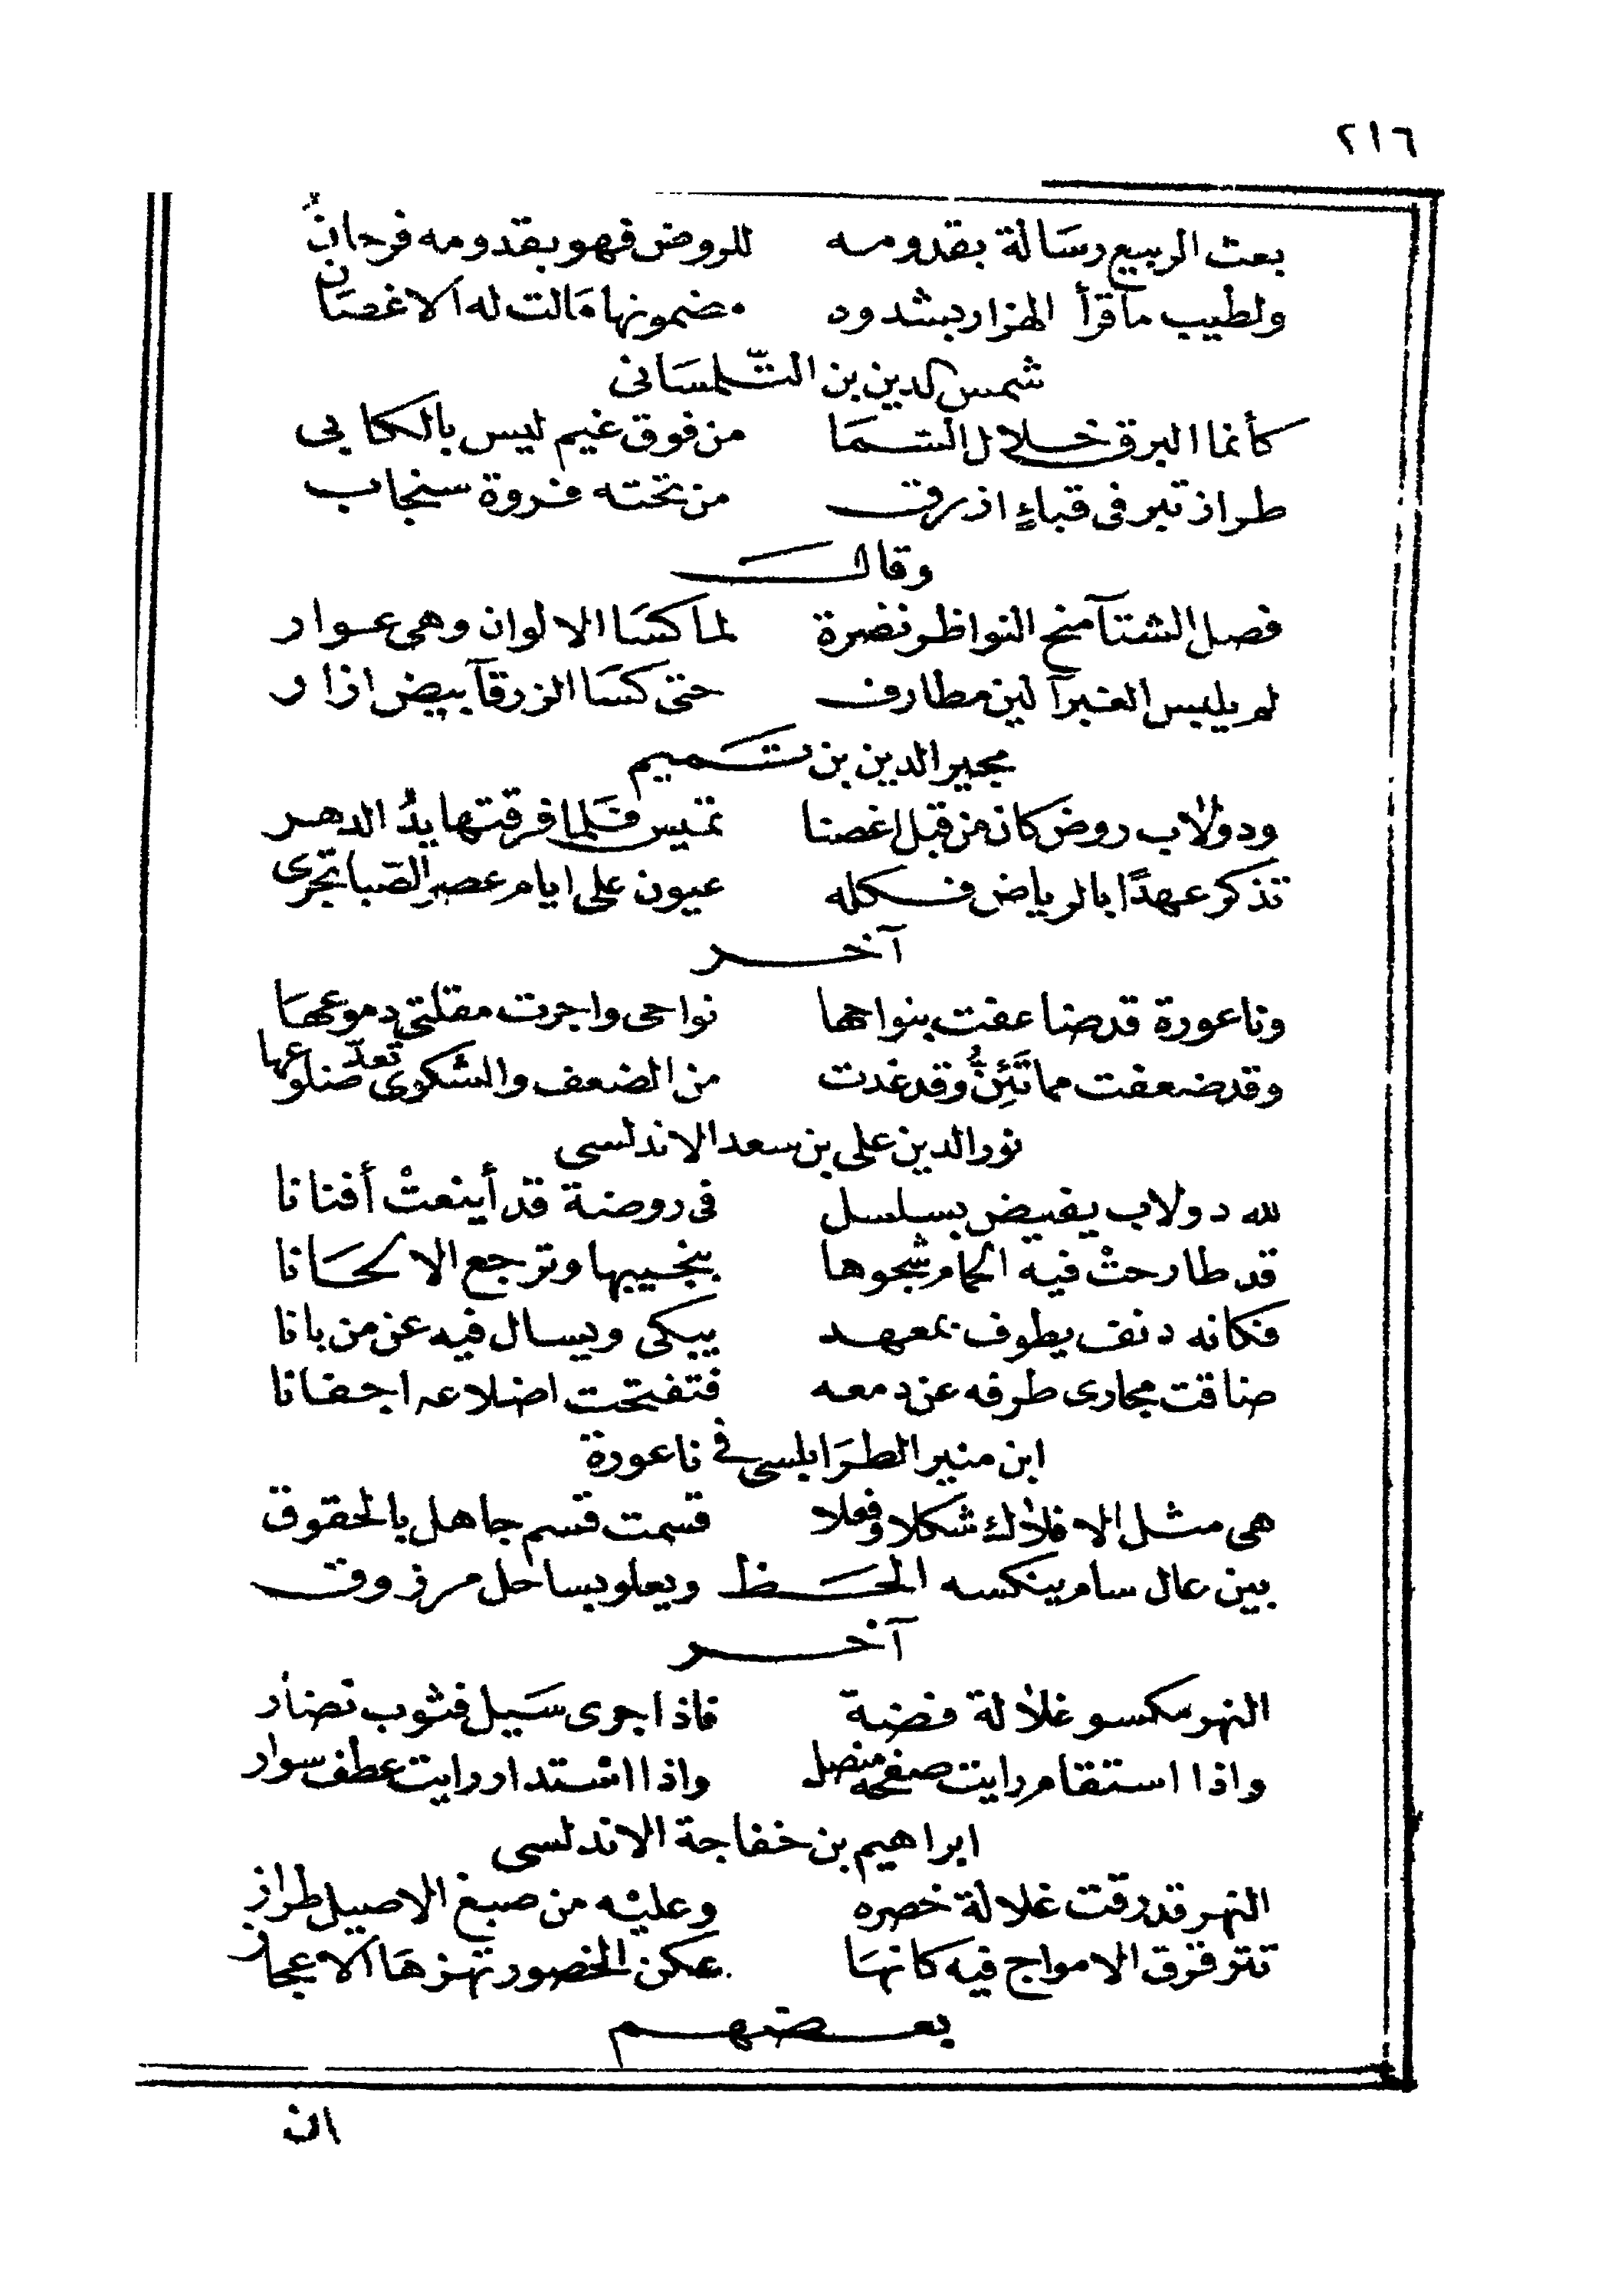 ٢١٦
بعث الربيع رسالة بقدومه للروض فهو بقدومه فرحانُ
ولطيب ما قرأ الهزار بشدوه مضمونها مالت له الاغصان
شمس الدين بن التّلمسانى
كأنما البرق خلال السما من فوق غيم ليس بالكابى
طراز تبر فى قباءٍ ازرق من تحته فروة سنجاب
وقال
فصل الشتآ منح النواظر نضرة لما كسا الالوان وهى عوار
لم يلبس الغبرآ لين مطارف حتى كسا الزرقآ بيض ازار
مجير الدين بن تميم
ودولاب روض كان من قبل اغصنا تميس فلما فرقتها يدُ الدهر
تذكر عهدًا بالرياض فكله عيون على ايام عصرِ الصّبا تجرى
آخر
وناعورة قد ضاعفت بنواحها نواحى واجرت مقلتى دموعها
وقد ضعفت مما تَئِنُّ وقد غدت من الضعف والشكوى تعدّ ضلوعها
نور الدين على بن سعد الاندلسى
لله دولاب يفيض بسلسل فى روضة قد أينعتْ أفنانا
قد طارحتْ فيه الحمام شجوها بنحيبها وترجع الالحانا
فكانه دنف يطوف بمعهد يبكى ويسال فيه عن من بانا
ضاقت مجارى طرفه عن دمعه فتفتحت اضلاعه اجفانا
ابن منير الطرابلسى فى ناعورة
هى مثل الافلاك شكلا وفعلا قسمت قسم جاهل بالحقوق
بين عال سام ينكسه الحظ ويعلو بساحل مرزوق
آخر
النهر مكسو غلالة فضة فاذا جرى سيل فثوب نضار
واذا استقام رايت صفحة منصل واذا استدار رايت عطف سوار
ابراهيم بن خفاجة الاندلسى
النهر قد رقت غلالة خصره وعليه من صبغ الاصيل طراز
تترقرق الامواج فيه كانها عكن الخصور تهزها الاعجاز
بعضهم
ان